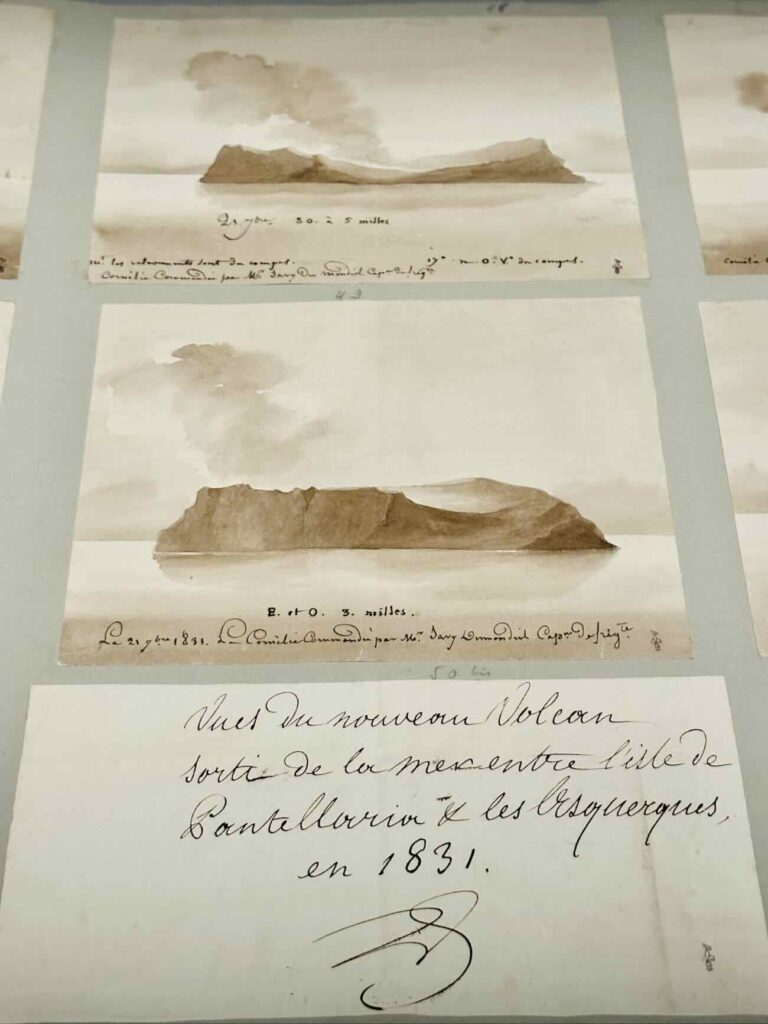 21. 7bre. SO. à 5 milles
les relevements sont du compas. 17° n. O. V. du compas.
Cornélie Commandée par Mr. Savy Du mondiil Capne. de frégte
49
E. et O. 3. milles.
Le 21 7bre 1831. La Cornélie Commandée par Mr. Savy Dumondiil Capne. De frégte.
50 bis
Vues du nouveau Volcan
sorti de la mer entre l'isle de
Pantellaria & les Esquerques,
en 1831.